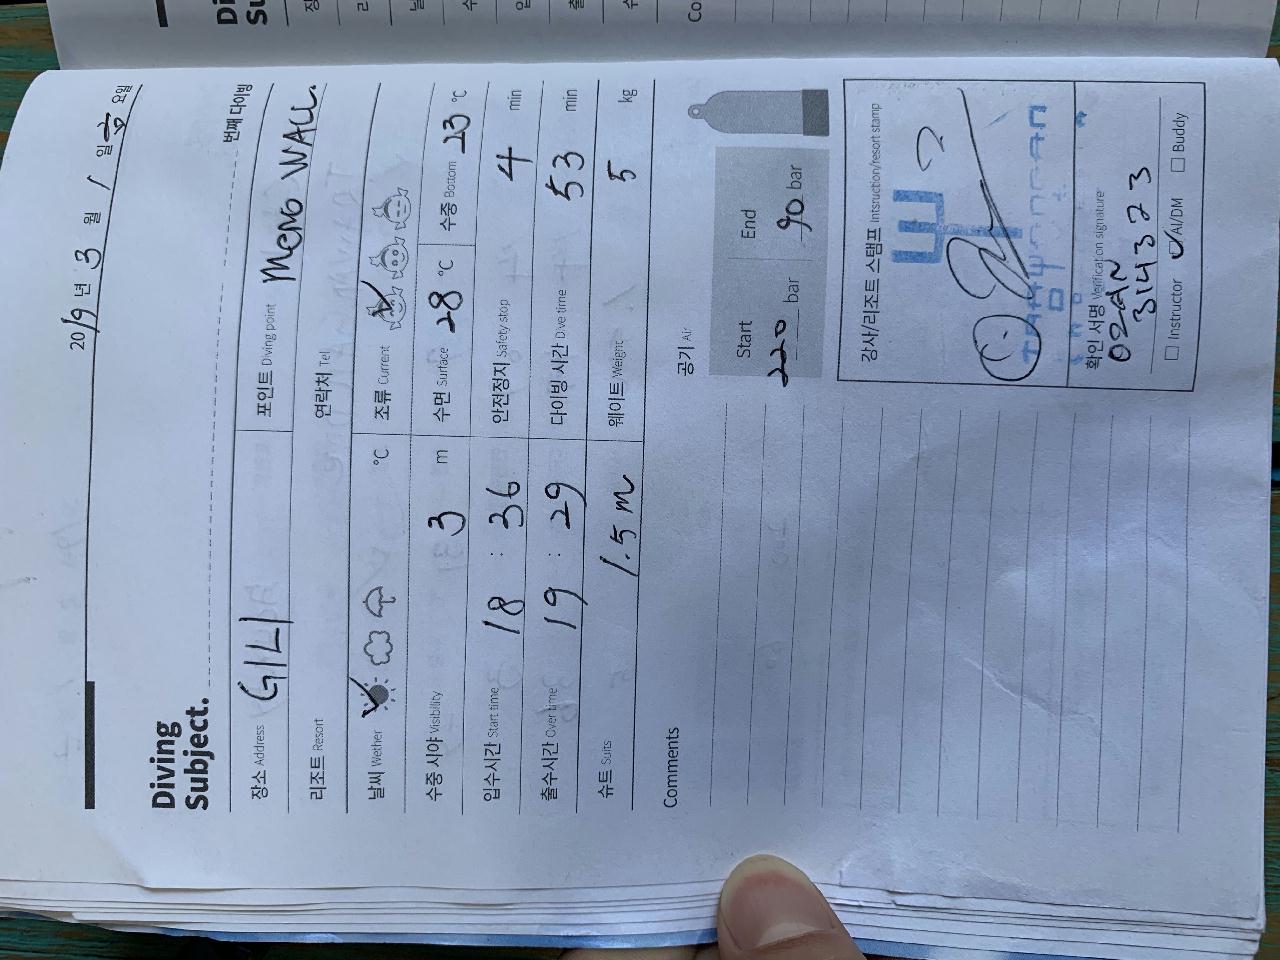 2019 년 3 월 1 일 금 요일
Diving
Subject.
번째 다이빙
장소 Address GILI 포인트 Diving point MENO WALL.
리조트 Resort 연락처 Tel
날씨 Wether °C 조류 Current
수중 시야 Visibility 3 m 수면 Surface 28 °C 수중 Bottom 23 °C
입수시간 Start time 18 : 36 안전정지 Safety stop 4 min
출수시간 Over time 19 : 29 다이빙 시간 Dive time 53 min
슈트 Suits 1.5 m 웨이트 Weight 5 kg
Comments
공기 Air
Start End
220 bar 90 bar
강사/리조트 스탬프 Intsruction/resort stamp
확인 서명 Verification signature
314323
Instructor AI/DM Buddy